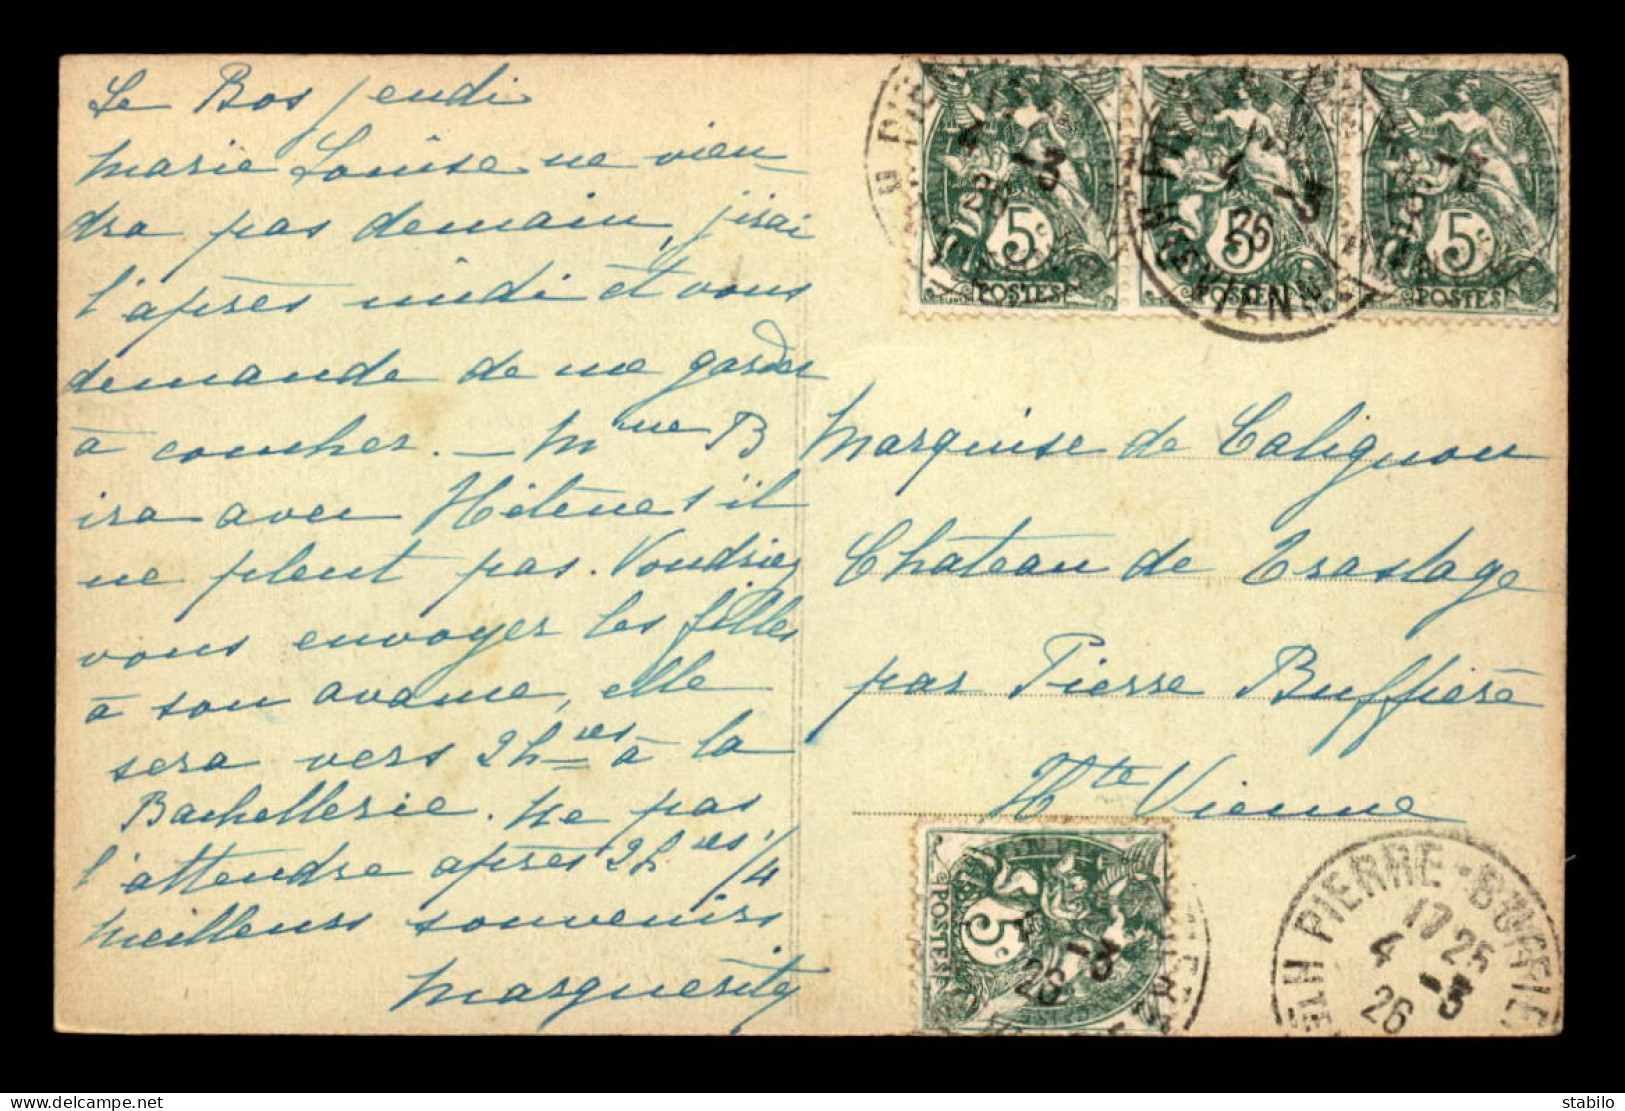 Le Bos jeudi
Marie Louise ne vien
dra pas demain, j'irai
l'après midi et vous
demande de me garder
à coucher. – Mme B
ira avec Hélène s'il
ne pleut pas. Voudriez
vous envoyer les filles
à son avance, elle
sera vers 2hres à la
Bachellerie. Ne pas
l'attendre après 2hres 1/4
Meilleurs souvenirs
Marguerite
5c
POSTES
5c
POSTES
5c
POSTES
4 -3
26
Marquise de Calignon
Château de Trastage
par Pierre Buffière
Hte Vienne
5c
POSTES
26 -3
PIERRE-BUFFIE
HTE
17 25
4 -3
26
stabilo